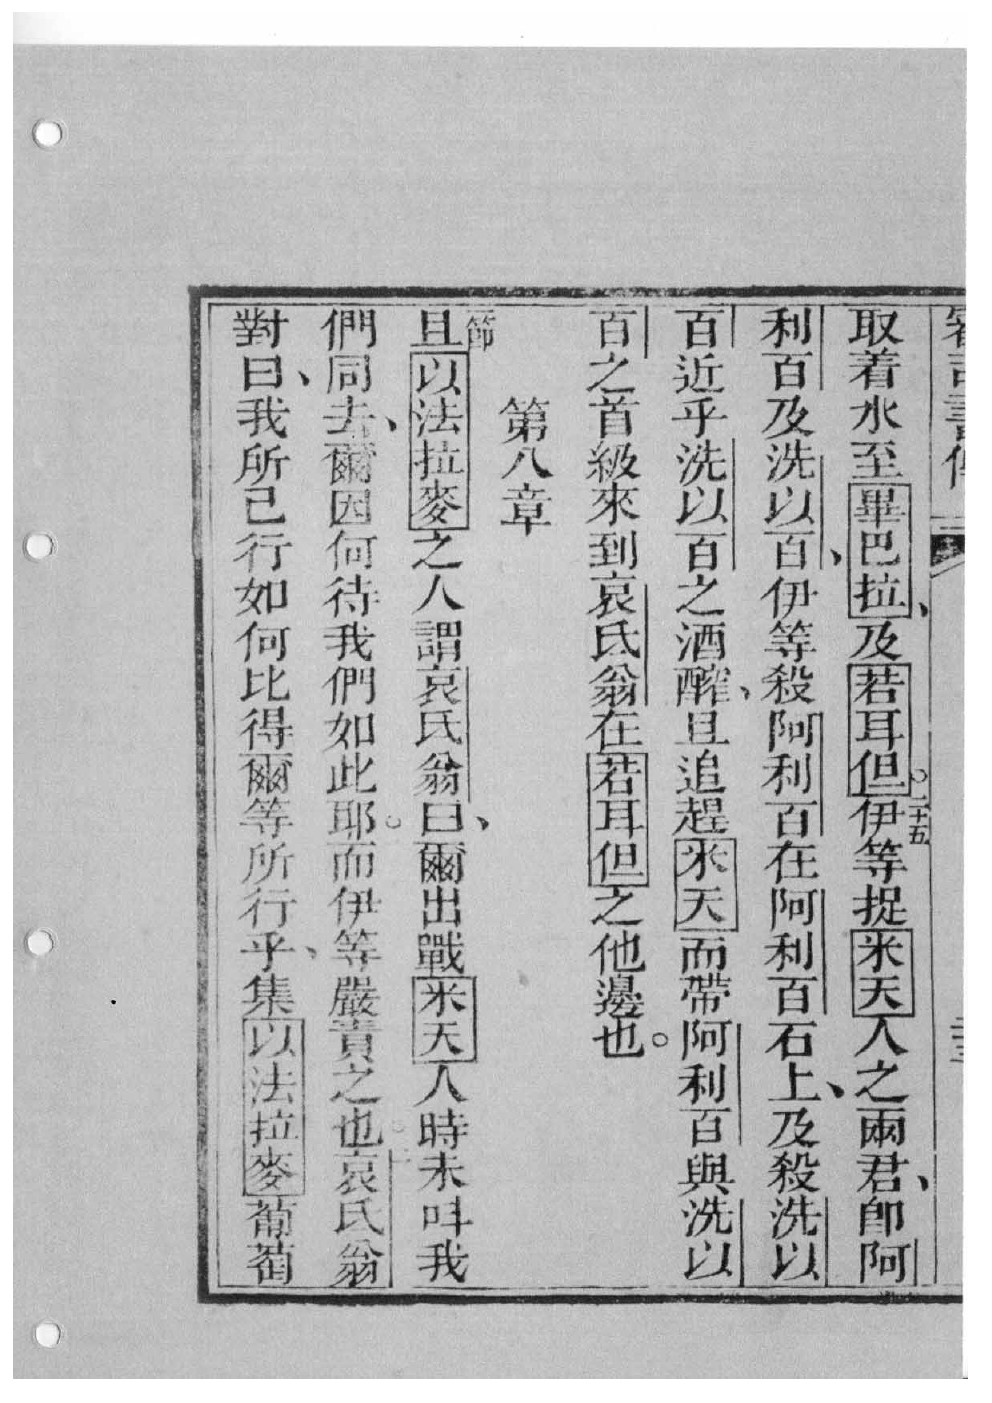 取着水至畢巴拉、及若耳但。二十五伊等捉米天人之兩君、卽阿
利百及洗以百、伊等殺阿利百在阿利百石上、及殺洗以
百近乎洗以百之酒醡、且追趕米天而帶阿利百與洗以
百之首級來到哀氏翁在若耳但之他邊也。
第八章
一節且以法拉麥之人謂哀氏翁曰、爾出戰米天人時未呌我
們同去、爾因何待我們如此耶。而伊等嚴責之也。二哀氏翁
對曰、我所已行如何比得爾等所行乎、集以法拉麥葡萄